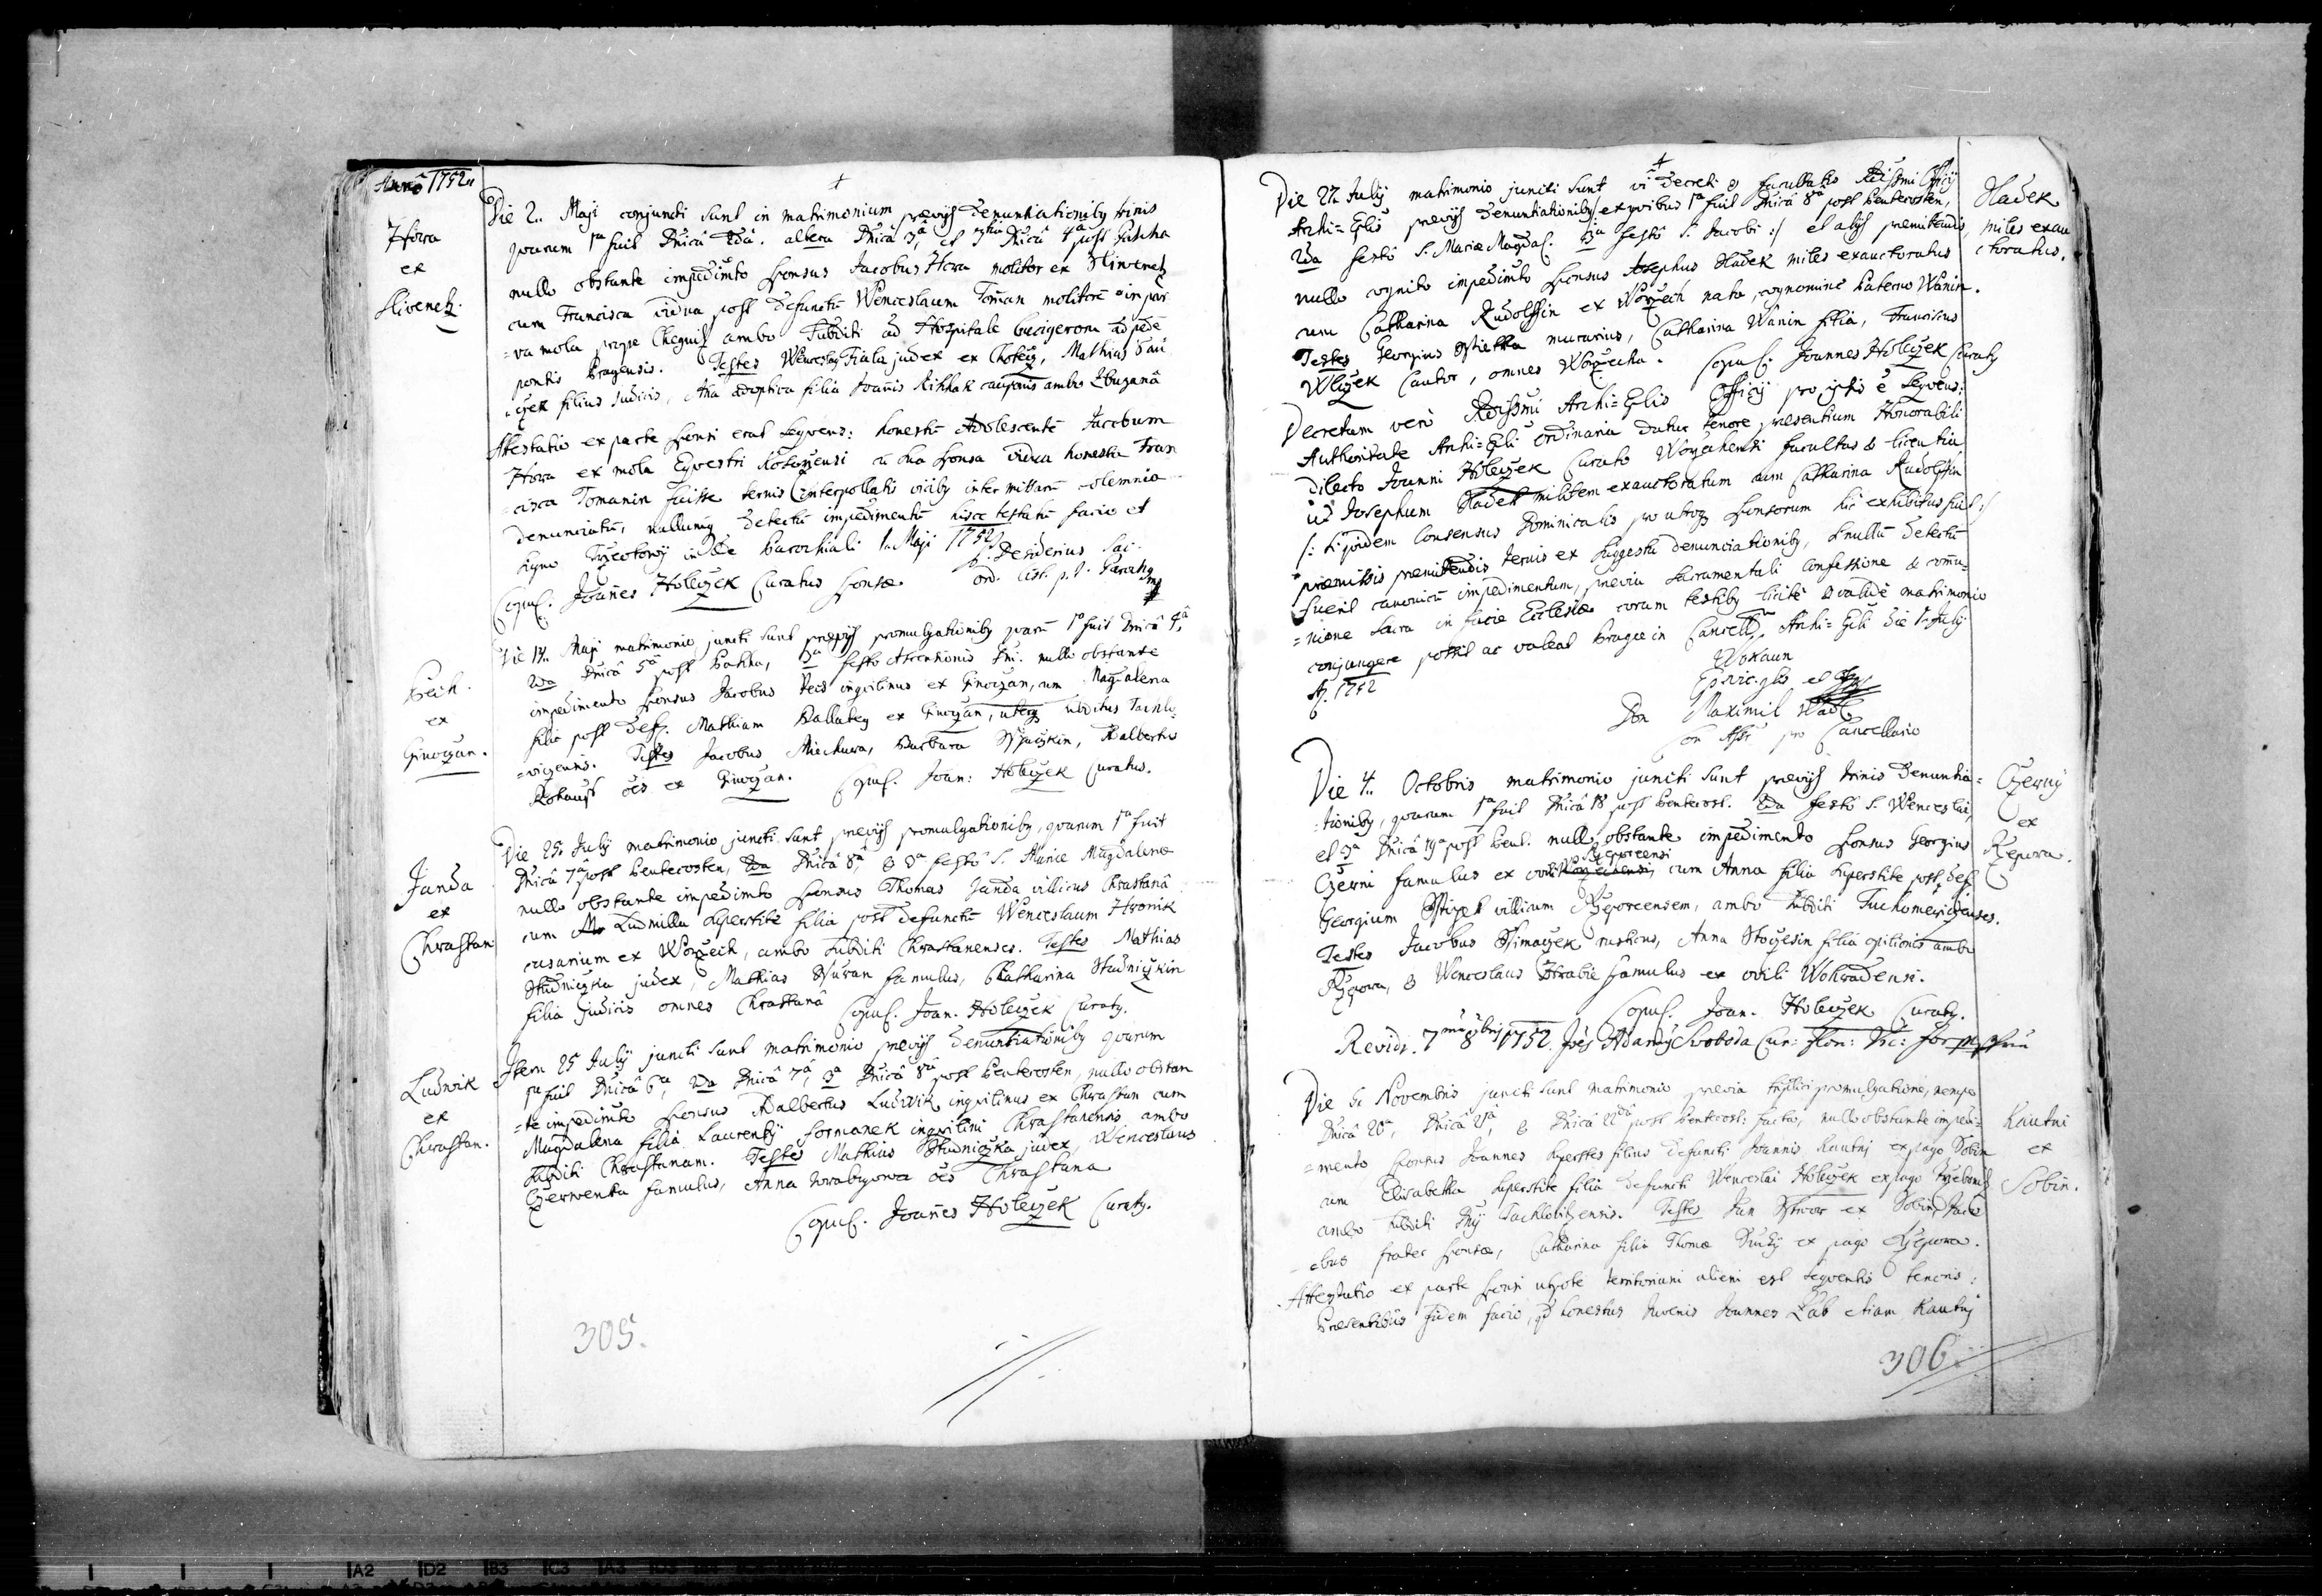 Anno 1752
Hora
ex
Slivenetz.
Die 2. Maji conjuncti sunt in matrimonium prævijs denuntiationibꝫ trinis
quarum 1ma fuit Dnicâ 2dâ. altera Dnicâ 3â, et 3tia Dnicâ 4â post Pascha
nullo obstante impedimto sponsus Jacobus Hora molitor ex Sliwenetz
cum Francisca vidua post defunctũ Wenceslaum Toman molitorẽ in par
=va mola prope ambo subditi ad Hospitale Crucigerorum ad pedẽ
pontis Pragensis. Testes Wenceslaꝫ Fiala judex ex Chotecz, Mathias
filius judicis, Aña adoptiva filia Joañis cauponis ambo Zbuzanâ
Attestatio ex parte sponsi erat sequens: honestũ Adolescentẽ Jacobum
Hora ex mola Equestri cũ sua sponsa vidua honesta Fran
=cisca Tomanin fuisse ternis interpollatis vicibꝫ inter missarũ solemnia
denunciatũ, nullumqꝫ detectũ impedimentũ hisce testatũ facio et
signo in Æde Parochiali 1. Maji 1752
P. Desiderius Sac.
Copul. Joañes Holeczek Curatus sponsæ. ord. Cist. p. t. Parochꝫ
Pech
ex
Ginoczan.
Die 14. Maji matrimonio juncti sunt prævijs promulgationibꝫ quarũ 1a fuit Dnicâ 4â,
2da Dnicâ 5â post Pascha, 3a festo Ascensionis Dni. nullo obstante
impedimento sponsus Jacobus Pech inquilinus ex Ginoczan, cum Magdalena
filia post def. Mathiam Ballatey ex Ginoczan, uterqꝫ subditus Tachlo=
=viczensis. Testes Jacobus Miechura, Barbara Adalbertus
Kohaut oẽs ex Ginoczan. Copul. Joan: Holeczek Curatus.
Janda
ex
Chrasstan
Die 25. Julij matrimonio juncti sunt prævijs promulgationibꝫ, quarum 1a fuit
Dnicâ 7â post Pentecosten, 2da Dnicâ 8â, & 3a festo S. Mariæ Magdalenæ
nullo obstante impedimto sponsus Thomas Janda villicus Chrastanâ
cum Ludmilla superstite filia post defunctũ Wenceslaum Hronik
casarium ex Worzech, ambo subditi Chrastanenses. Testes Mathias
Studniczka judex, Mathias Duran famulus, Catharina Studniczkin
filia Judicis omnes Chrastanâ Copul. Joan. Holeczek Curatꝫ.
Ludwik
ex
Chrasstan.
Item 25 Julij juncti sunt matrimonio prævijs denuntiationibꝫ quarum
1a fuit Dnicâ 6a, 2da Dnicâ 7a, 3a Dnicâ 8a post Pentecosten, nullo obstan
=te impedimto sponsus Adalbertus Ludwik inquilinus ex Chrasstan cum
Magdalena filia Laurentij Formanek inquilini Chrastanensis ambo
subditi Chrastanam. Testes Mathias Studniczka judex, Wenceslaus
Czerwenka famulus, Anna oẽs Chrastana
Copul. Joañes Holeczek Curatꝫ.
305.
Die 27. Julij matrimonio juncti sunt vi decreti & facultatis Rdissimi Officij
Archi=Eplis prævijs denuntiationibꝫ /: ex quibus 1a fuit Dnicâ 8â post Pentecosten,
2da festo S. Mariæ Magdal. 3a festo S. Jacobi :/ et alijs præmittendis,
nullo cognito impedimto sponsus Josephus Sladek miles exauctoratus
cum Catharina Rudolffin ex Worzech nata, cognomine Paterno Wanin.
Testes Georgius murarius, Catharina Wanin filia, Franciscus
Wlczek Cantor, omnes Worzecho. Copul. Joannes Holeczek Curatꝫ
Sladek
miles exau
ctoratus.
Decretum verò Rdissimi Archi=Eplis Officij pro ijsdẽ ẽ sequens:
Authoritate Archi=Epli ordinaria datur tenore præsentium Honorabili
dilecto Joanni Holeczek Curato Worzechensi facultas & licentia
ut Josephum Sladek militem exauctoratum cum Catharina Rudolffin
/: siquidem Consensus Dominicalis pro utroqꝫ sponsorum hic exhibitus fuit :/
præmissis præmittendis ternis ex suggestu denunciationibꝫ, si nullũ detectũ
fuerit canonicũ impedimentum, prævia sacramentali Confessione & com̃u=
=nione sacra in facie Ecclesiæ coram testibꝫ licitè & validè matrimonio
conjungere possit ac valeat Pragæ in Cancell. Archi=Epli die 1. Julij
A. 1752
Wokaun
Ep. Vic. glis et
Maximil
pro Cancellario
Die 4. Octobris matrimonio juncti sunt prævijs trinis denuntia=
tionibꝫ, quarum 1a fuit Dnicâ 18 post Pentecost. 2da festo S. Wenceslai,
et 3a Dnicâ 19a post Pent. nullo obstante impedimento sponsus Georgius
Czerni famulus ex ovili Rzeporensi, cum Anna filia superstite post def
Georgium villicum Rzeporensem, ambo subditi Tuchomericzenses.
Testes Jacobus Ssimaczek rusticus, Anna filia opilionis ambo
Rzepora, & Wenceslaus Hrabie famulus ex ovili Wohradensi.
Copul. Joan. Holeczek Curatꝫ.
Czerny
ex
Rzepora.
Revidi. 7mâ 8bris 1752. Joes Adamꝫ Swoboda
Die 5. Novembris juncti sunt matrimonio prævia triplici promulgatione, nempe
Dnicâ 20a, Dnicâ 21â, & Dnicâ 22dâ post Pentecost: facta, nullo obstante impedi=
=mento sponsus Joannes superstes filius defuncti Joannis Kautni ex pago Sobin
cum Elisabetha superstite filia defuncti Wenceslai Holeczek ex pago Trzebonitz
ambo subditi Dnij Tachlovitzensis. Testes Jan ex Sobin, Jaco
=bus frater sponsæ, Catharina filia Thomæ Suchy ex pago Rzepora.
Attestatio ex parte sponsi utpote territoriani alieni est sequentis tenoris:
Præsentibus fidem facio, qd honestus Juvenis Joannes Lab etiam Kautnj
Kautni
ex
Sobin.
306